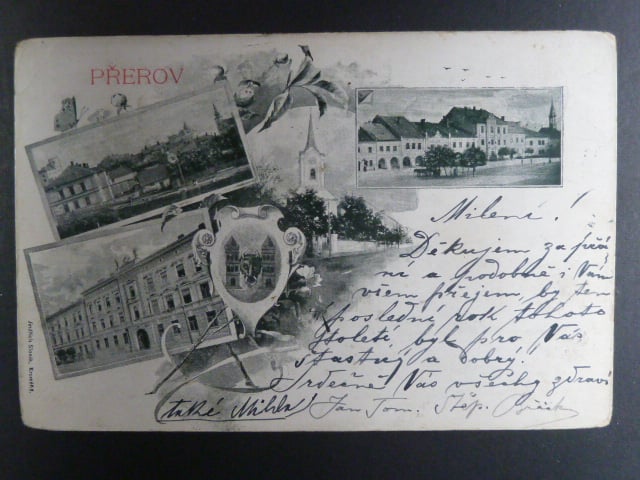 PŘEROV
Milení!
Děkujem za přá
ní a podobně i Vám
všem přejem, by ten
poslední rok tohoto
století, byl pro Vás
šťastný a dobrý!
Srdečně Vás všechy zdraví
také Milda! Jan Tom. Štěp.